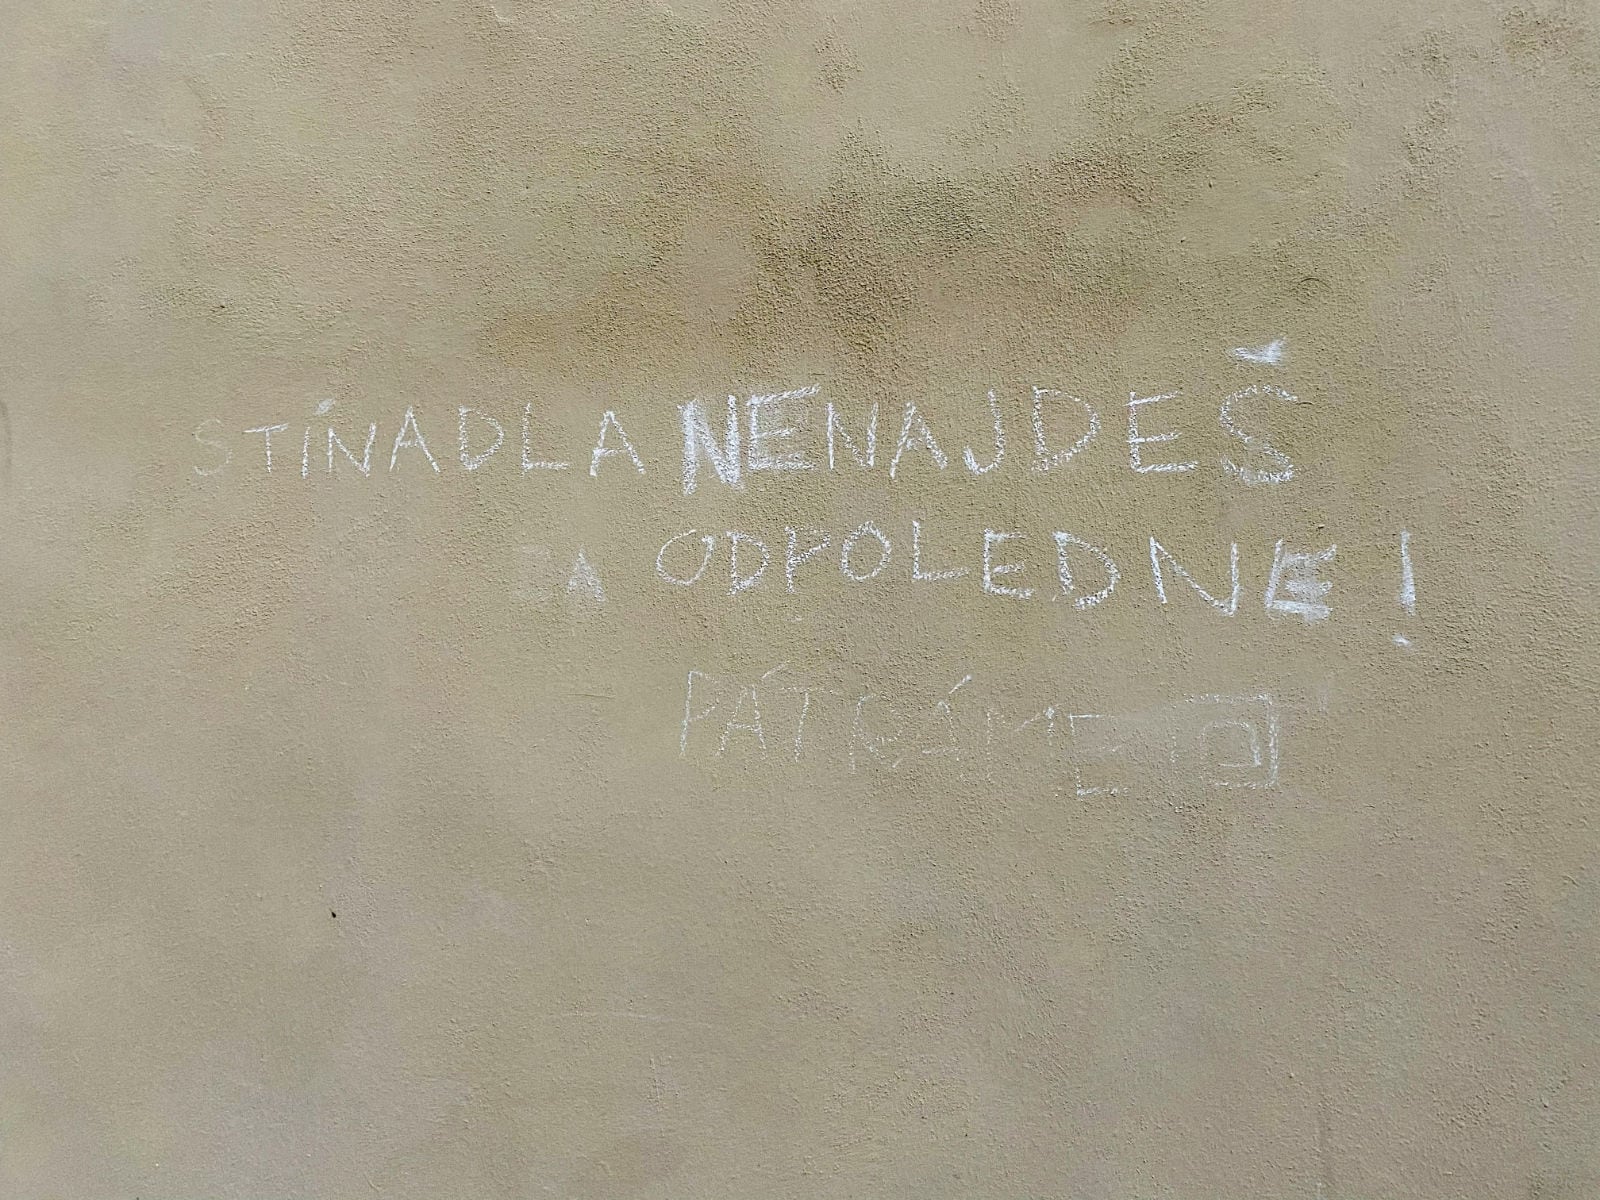 STÍNADLA NENAJDEŠ
ZA ODPOLEDNE!
PÁTRÁME